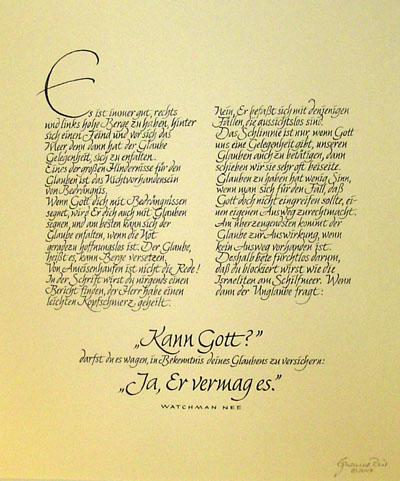 Es ist immer gut, rechts
und links hohe Berge zu haben, hinter
sich einen Feind und vor sich das
Meer, denn dann hat der Glaube
Gelegenheit, sich zu entfalten.
Eines der großen Hindernisse für den
Glauben ist das Nichtvorhandensein
von Bedrängnis.
Wenn Gott dich mit Bedrängnissen
segnet, wird Er dich auch mit Glauben
segnen, und am besten kann sich der
Glaube entfalten, wenn die Not
geradezu hoffnungslos ist. Der Glaube,
heißt es, kann Berge versetzen.
Von Ameisenhaufen ist nicht die Rede!
In der Schrift wirst du nirgends einen
Bericht finden, der Herr habe einen
leichten Kopfschmerz geheilt.
Nein, Er befaßt sich mit denjenigen
Fällen, die aussichtslos sind.
Das Schlimme ist nur, wenn Gott
uns eine Gelegenheit gibt, unseren
Glauben auch zu betätigen, dann
schieben wir sie sehr oft beiseite.
Glauben zu haben hat wenig Sinn,
wenn man sich für den Fall, daß
Gott doch nicht eingreifen sollte, ei-
nen eigenen Ausweg zurechtmacht.
Am überzeugendsten kommt der
Glaube zur Auswirkung, wenn
kein Ausweg vorhanden ist.
Deshalb bete furchtlos darum,
daß du blockiert wirst wie die
Israeliten am Schilfmeer. Wenn
dann der Unglaube fragt:
„Kann Gott?"
darfst du es wagen, in Bekenntnis deines Glaubens zu versichern:
„Ja, Er vermag es."
WATCHMAN NEE